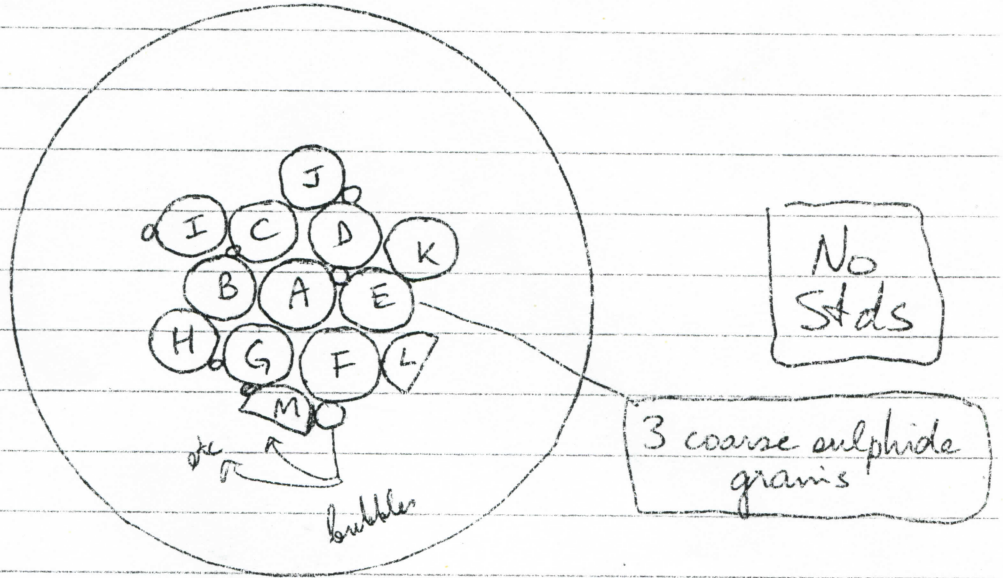 J
I C D K
B A E
H G F L
M
etc
bubbles
No
Stds
3 coarse sulphide
grains